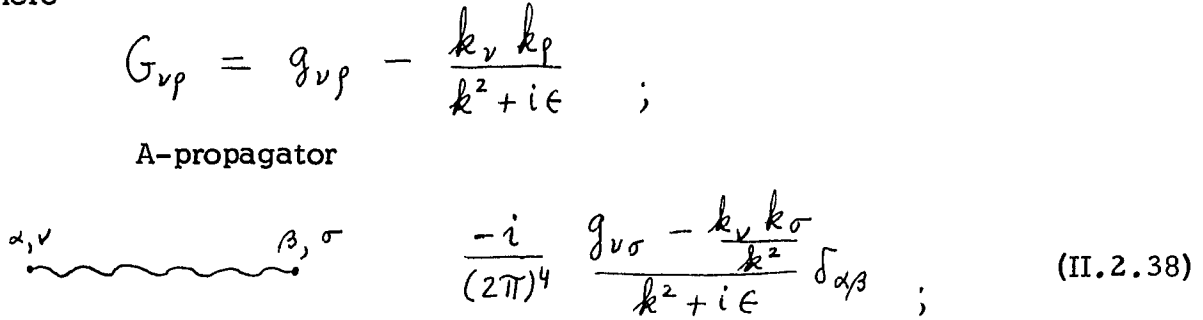 G_{νρ} = g_{νρ} - \frac{k_ν k_ρ}{k^2 + iε} ;
A-propagator
α,ν β, σ \frac{-i}{(2π)^4} \frac{g_{νσ} - \frac{k_ν k_σ}{k^2}}{k^2 + iε} δ_{αβ} ; (II.2.38)